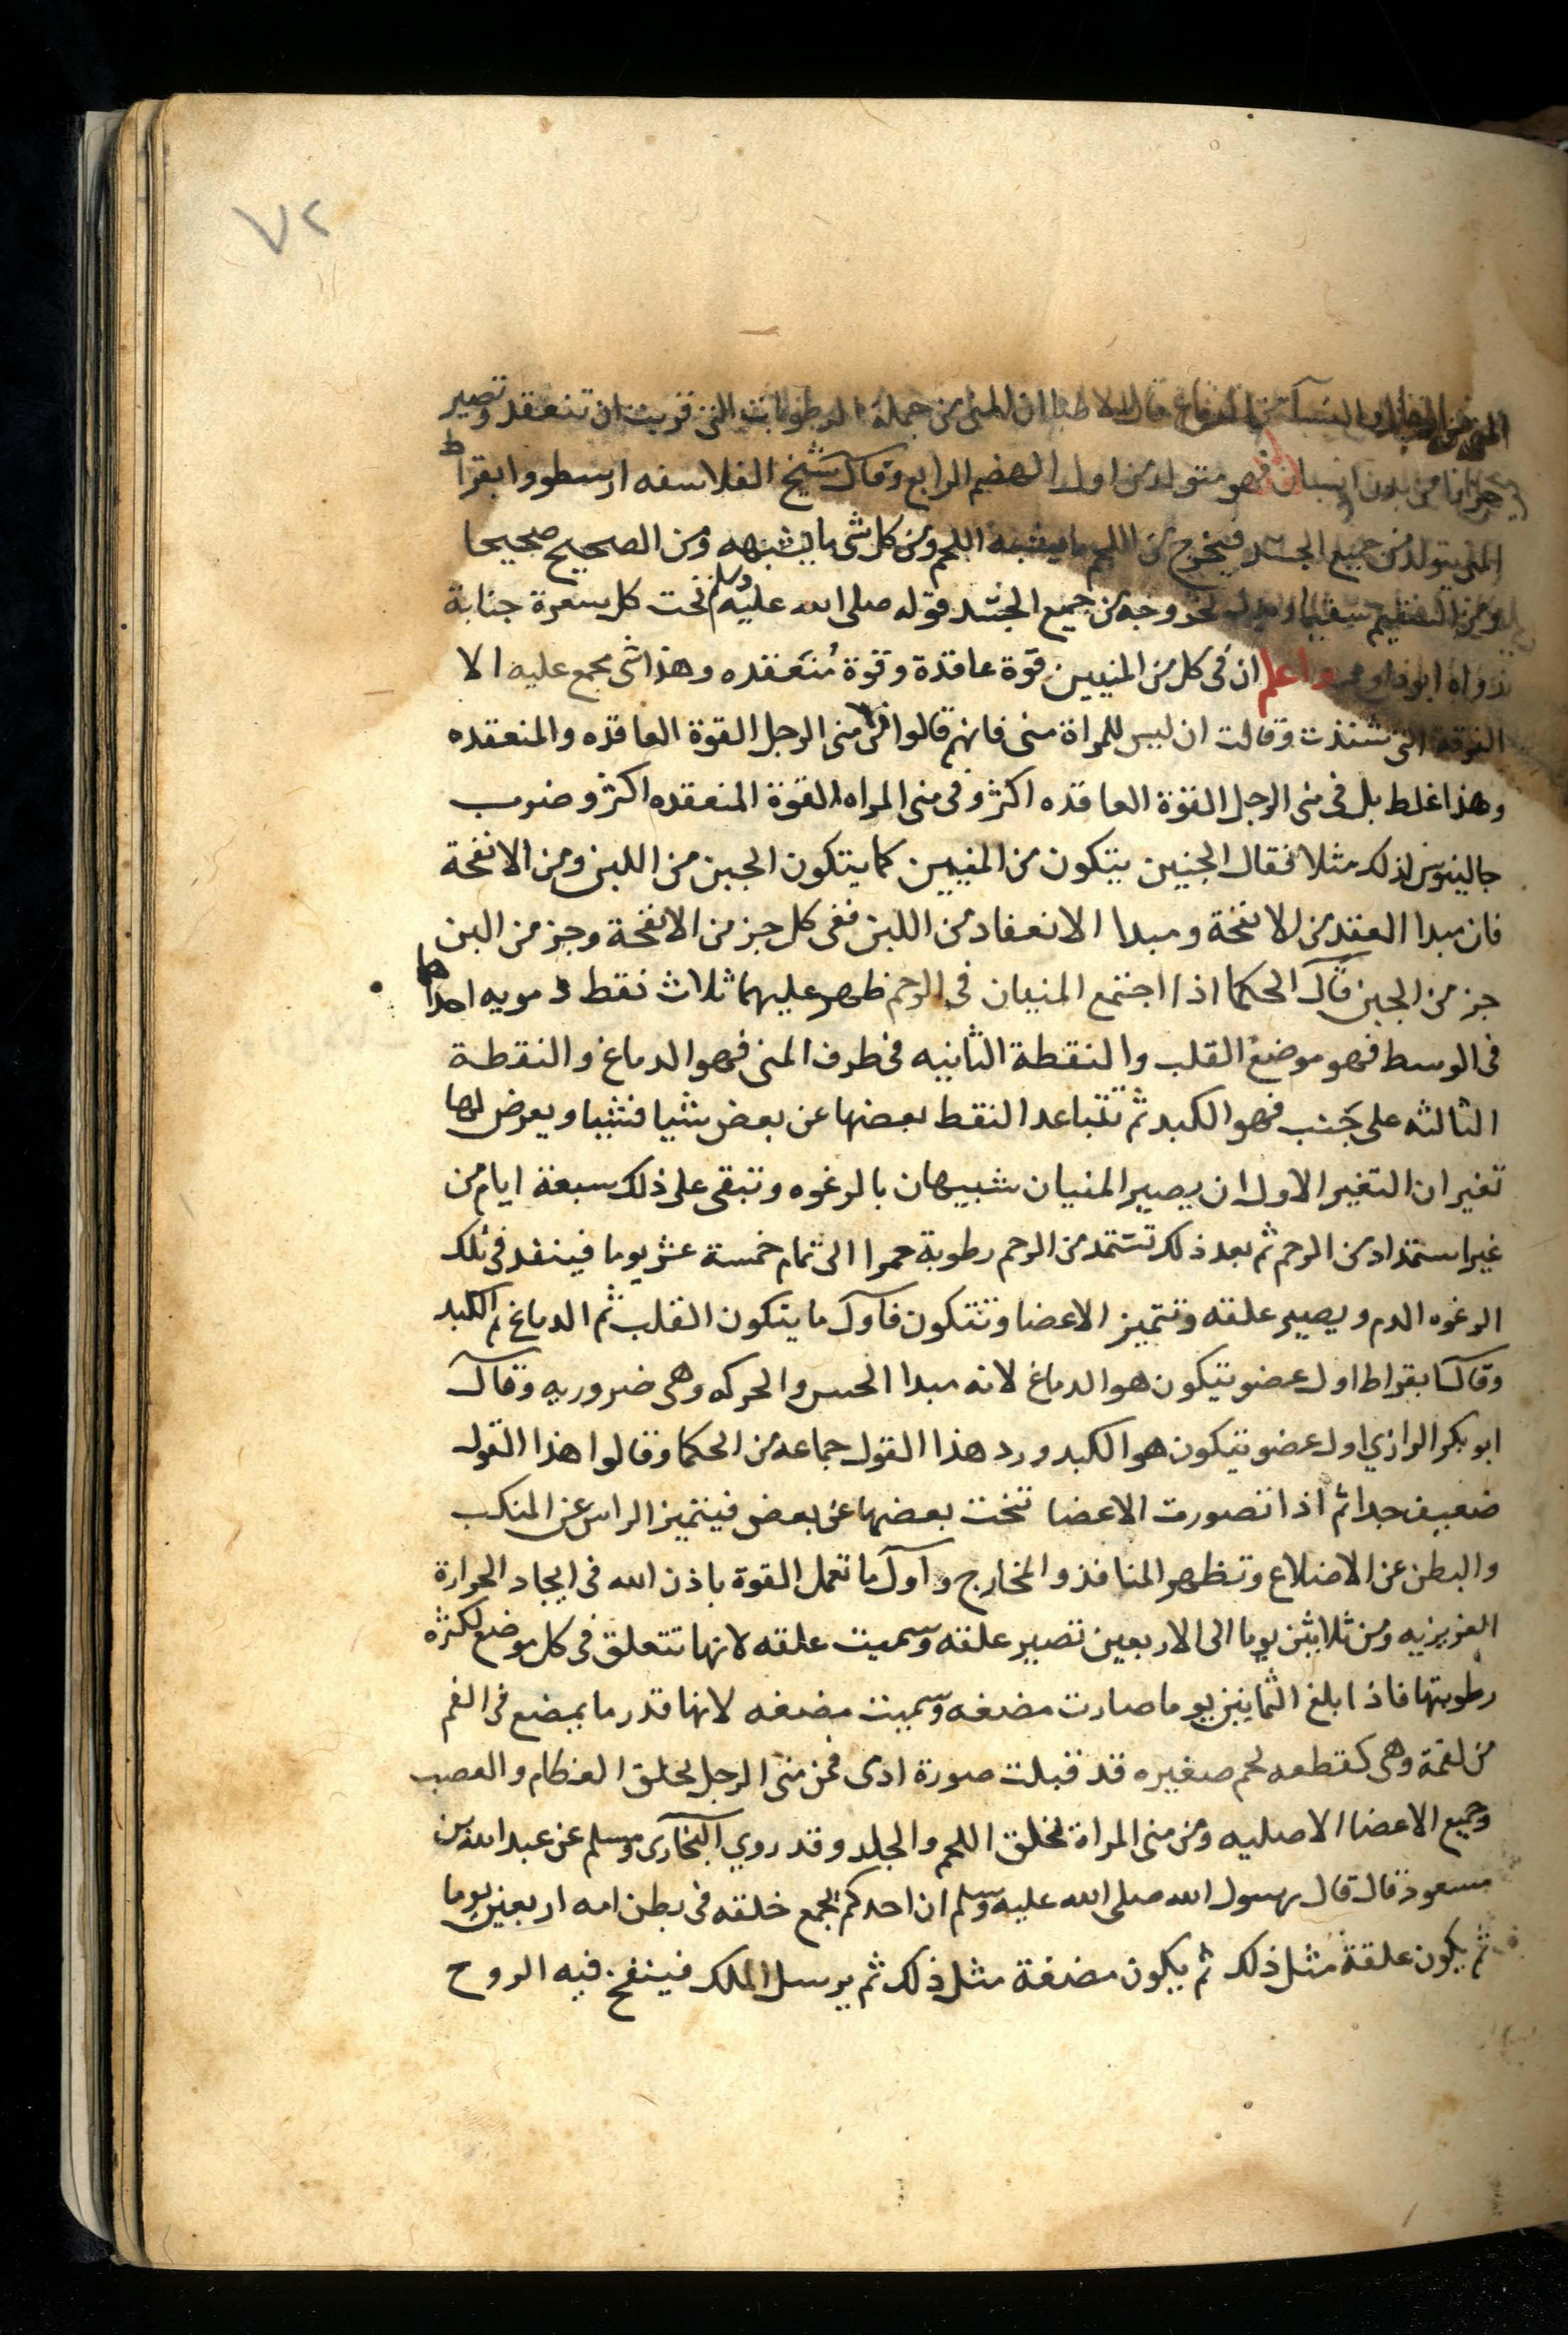 ٧٢
المني من الرجال والنسا من الدماغ قال الاطبا ان المني من جملة الرطوبات التي قربت ان تنعقد وتصير
من بدن انسان فهو متولد من اول الهضم الرابع وقال شيخ الفلاسفه ارسطو وابقراط
المني يتولد من جميع الجسد فيخرج من اللحم ما يشبه اللحم ومن كل شي ما يشبهه ومن الصحيح صحيحا
ومن السقيم سقيما لخروجه من جميع الجسد قوله صلى الله عليه وسلم تحت كل سعرة جنابة
رواه ابو داود واعلم ان في كل من المنيين قوة عاقدة وقوة منعقده وهذا شى مجمع عليه الا
الفرقة التى شذت وقالت ان ليس للمراة منى فانهم قالوا في منى الرجل القوة العاقده والمنعقده
وهذا غلط بل فى منى الرجل القوة العاقده اكثر وفى منى المراه القوة المنعقده اكثر وضرب
جالينوس لذلك مثلا فقال الجنين يتكون من المنيين كما يتكون الجبن من اللبن ومن الانفحة
فان مبدا العقد من الانفخة ومبدا الانعقاد من اللبن ففى كل جز من الانفحة وجز من البن
جز من الجبن قال الحكما اذا اجتمع المنيان فى الرحم ظهر عليهما ثلاث نقط دمويه احداها
فى الوسط فهو موضع القلب والنقطة الثانيه فى طرف المنى فهو الدماغ والنقطة
الثالثه على جنب فهو الكبد ثم تتباعد النقط بعضها عن بعض شيا فشيا ويعرض لها
تغيران التغير الاول ان يصير المنيان شبيهان بالرغوه وتبقى على ذلك سبعة ايام من
غير استمداد من الرحم ثم بعد ذلك تستمد من الرحم رطوبة حمرا الى تمام خمسة عشر يوما فينفد فى تلك
الرغوه الدم ويصير علقه وتتميز الاعضا وتتكون فاول ما يتكون القلب ثم الدماغ ثم الكبد
وقال ابقراط اول عضو يتيكون هو الدماغ لانه مبدا الحس والحركه وهى ضروريه وقال
ابو بكر الرازي اول عضو يتيكون هو الكبد ورد هذا القول جماعه من الحكما وقالوا هذا القول
ضعيف جدا ثم اذا تصورت الاعضا تنحت بعضها عن بعض فيتميز الراس عن المنكب
والبطن عن الاضلاع وتظهر المنافذ والمخارج واول ما تعمل القوة باذن الله فى ايجاد الحرارة
الغريزيه ومن ثلاثين يوما الى الاربعين تصير علقه وسميت علقه لانها تتعلق فى كل موضع لكثرة
رطوبتها فاذا بلغ الثمانين يوما صارت مضغه وسميت مضغه لانها قدر ما يمضع فى الفم
من لقمة وهى كقطعه لحم صغيره قد قبلت صورة ادى فمن منى الرجل يخلق العظام والعصب
وجميع الاعضا الاصليه ومن منى المراة يخلق اللحم والجلد وقد روي البخارى ومسلم عن عبد الله بن
مسعود قال قال رسول الله صلى الله عليه وسلم ان احدكم يجمع خلقه فى بطن امه اربعين يوما
ثم يكون علقة مثل ذلك ثم يكون مضغة مثل ذلك ثم يرسل الملك فينفخ فيه الروح